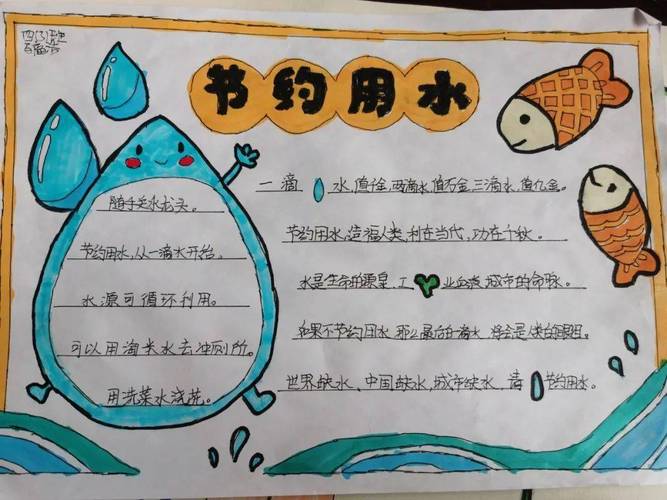 节约用水
随手关水龙头。
节约用水,从一滴水开始。
水源可循环利用。
可以用淘米水去冲厕所。
用洗菜水浇花。
一滴水,值千金,两滴水,值百金,三滴水,值亿金。
节约用水,造福人类,利在当代,功在千秋。
水是生命的源泉、工业血液、城市的命脉。
如果不节约用水,那么最后的一滴水,将会是人类的眼泪。
世界缺水、中国缺水,城市缺水,请节约用水。